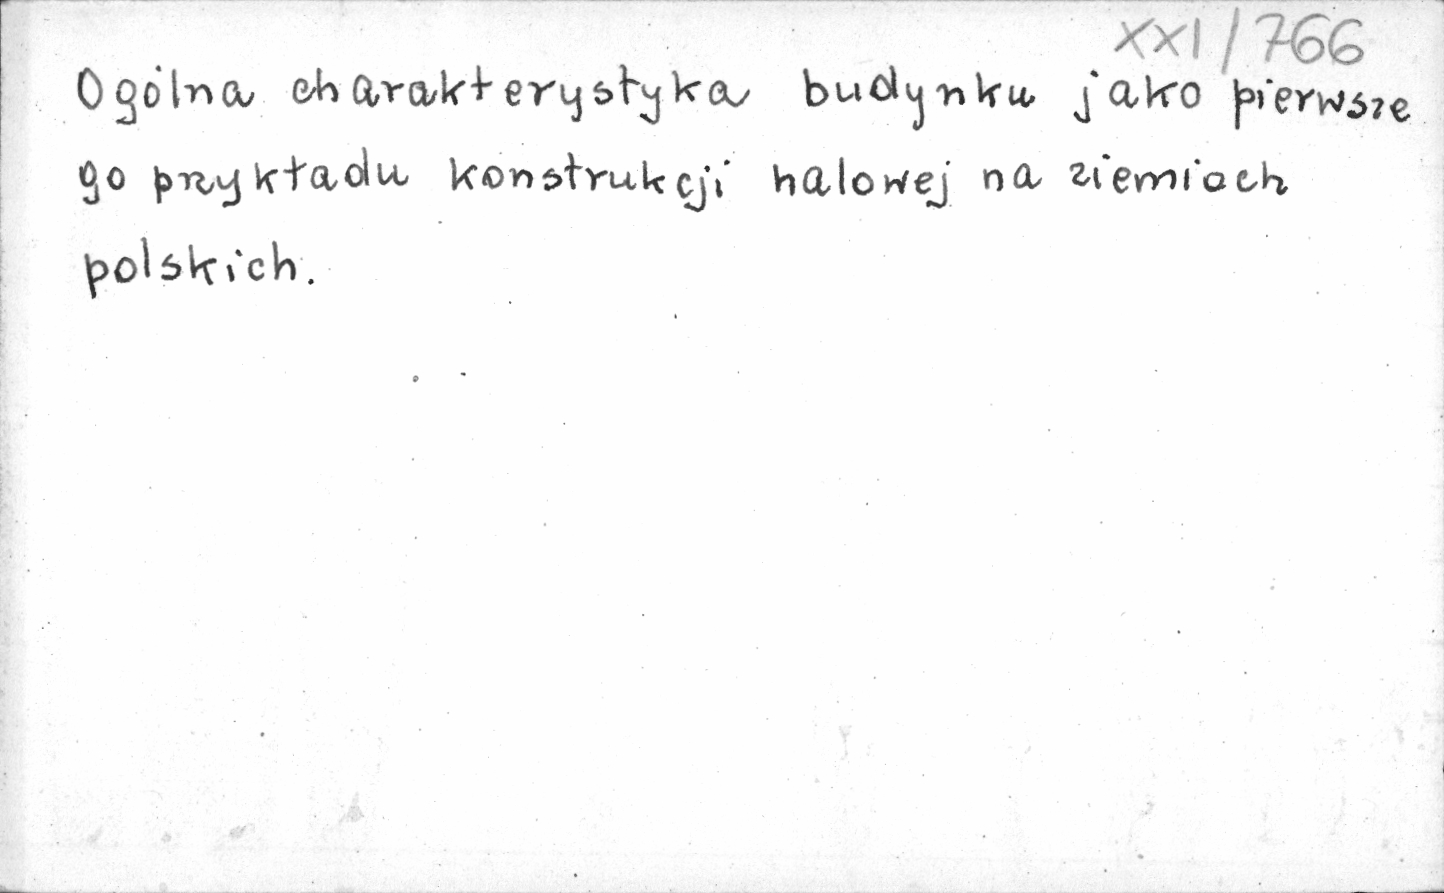 XXI/766
Ogólna charakterystyka budynku jako pierwsze
go przykładu konstrukcji halowej na ziemiach
polskich.